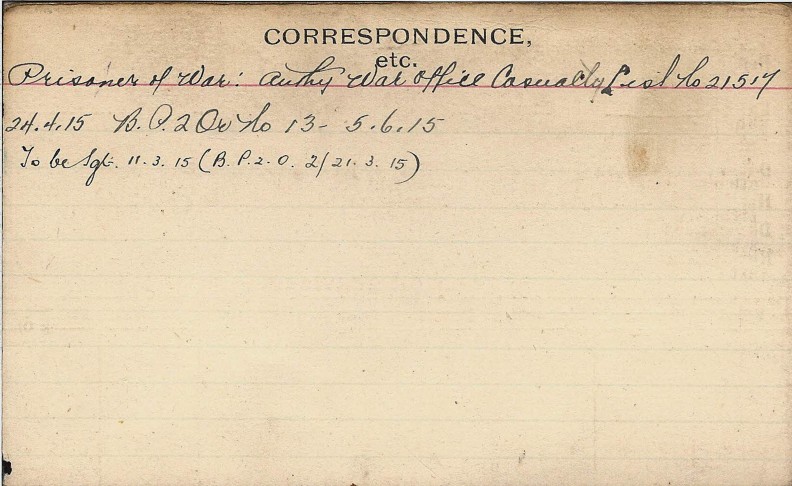 CORRESPONDENCE,
etc.
Prisoner of War: Authy War Office Casualty List No 21517
24.4.15 B.P.2 Or No 13 - 5.6.15
To be Sgt. 11.3.15 (B.P.2.O. 2/21.3.15)